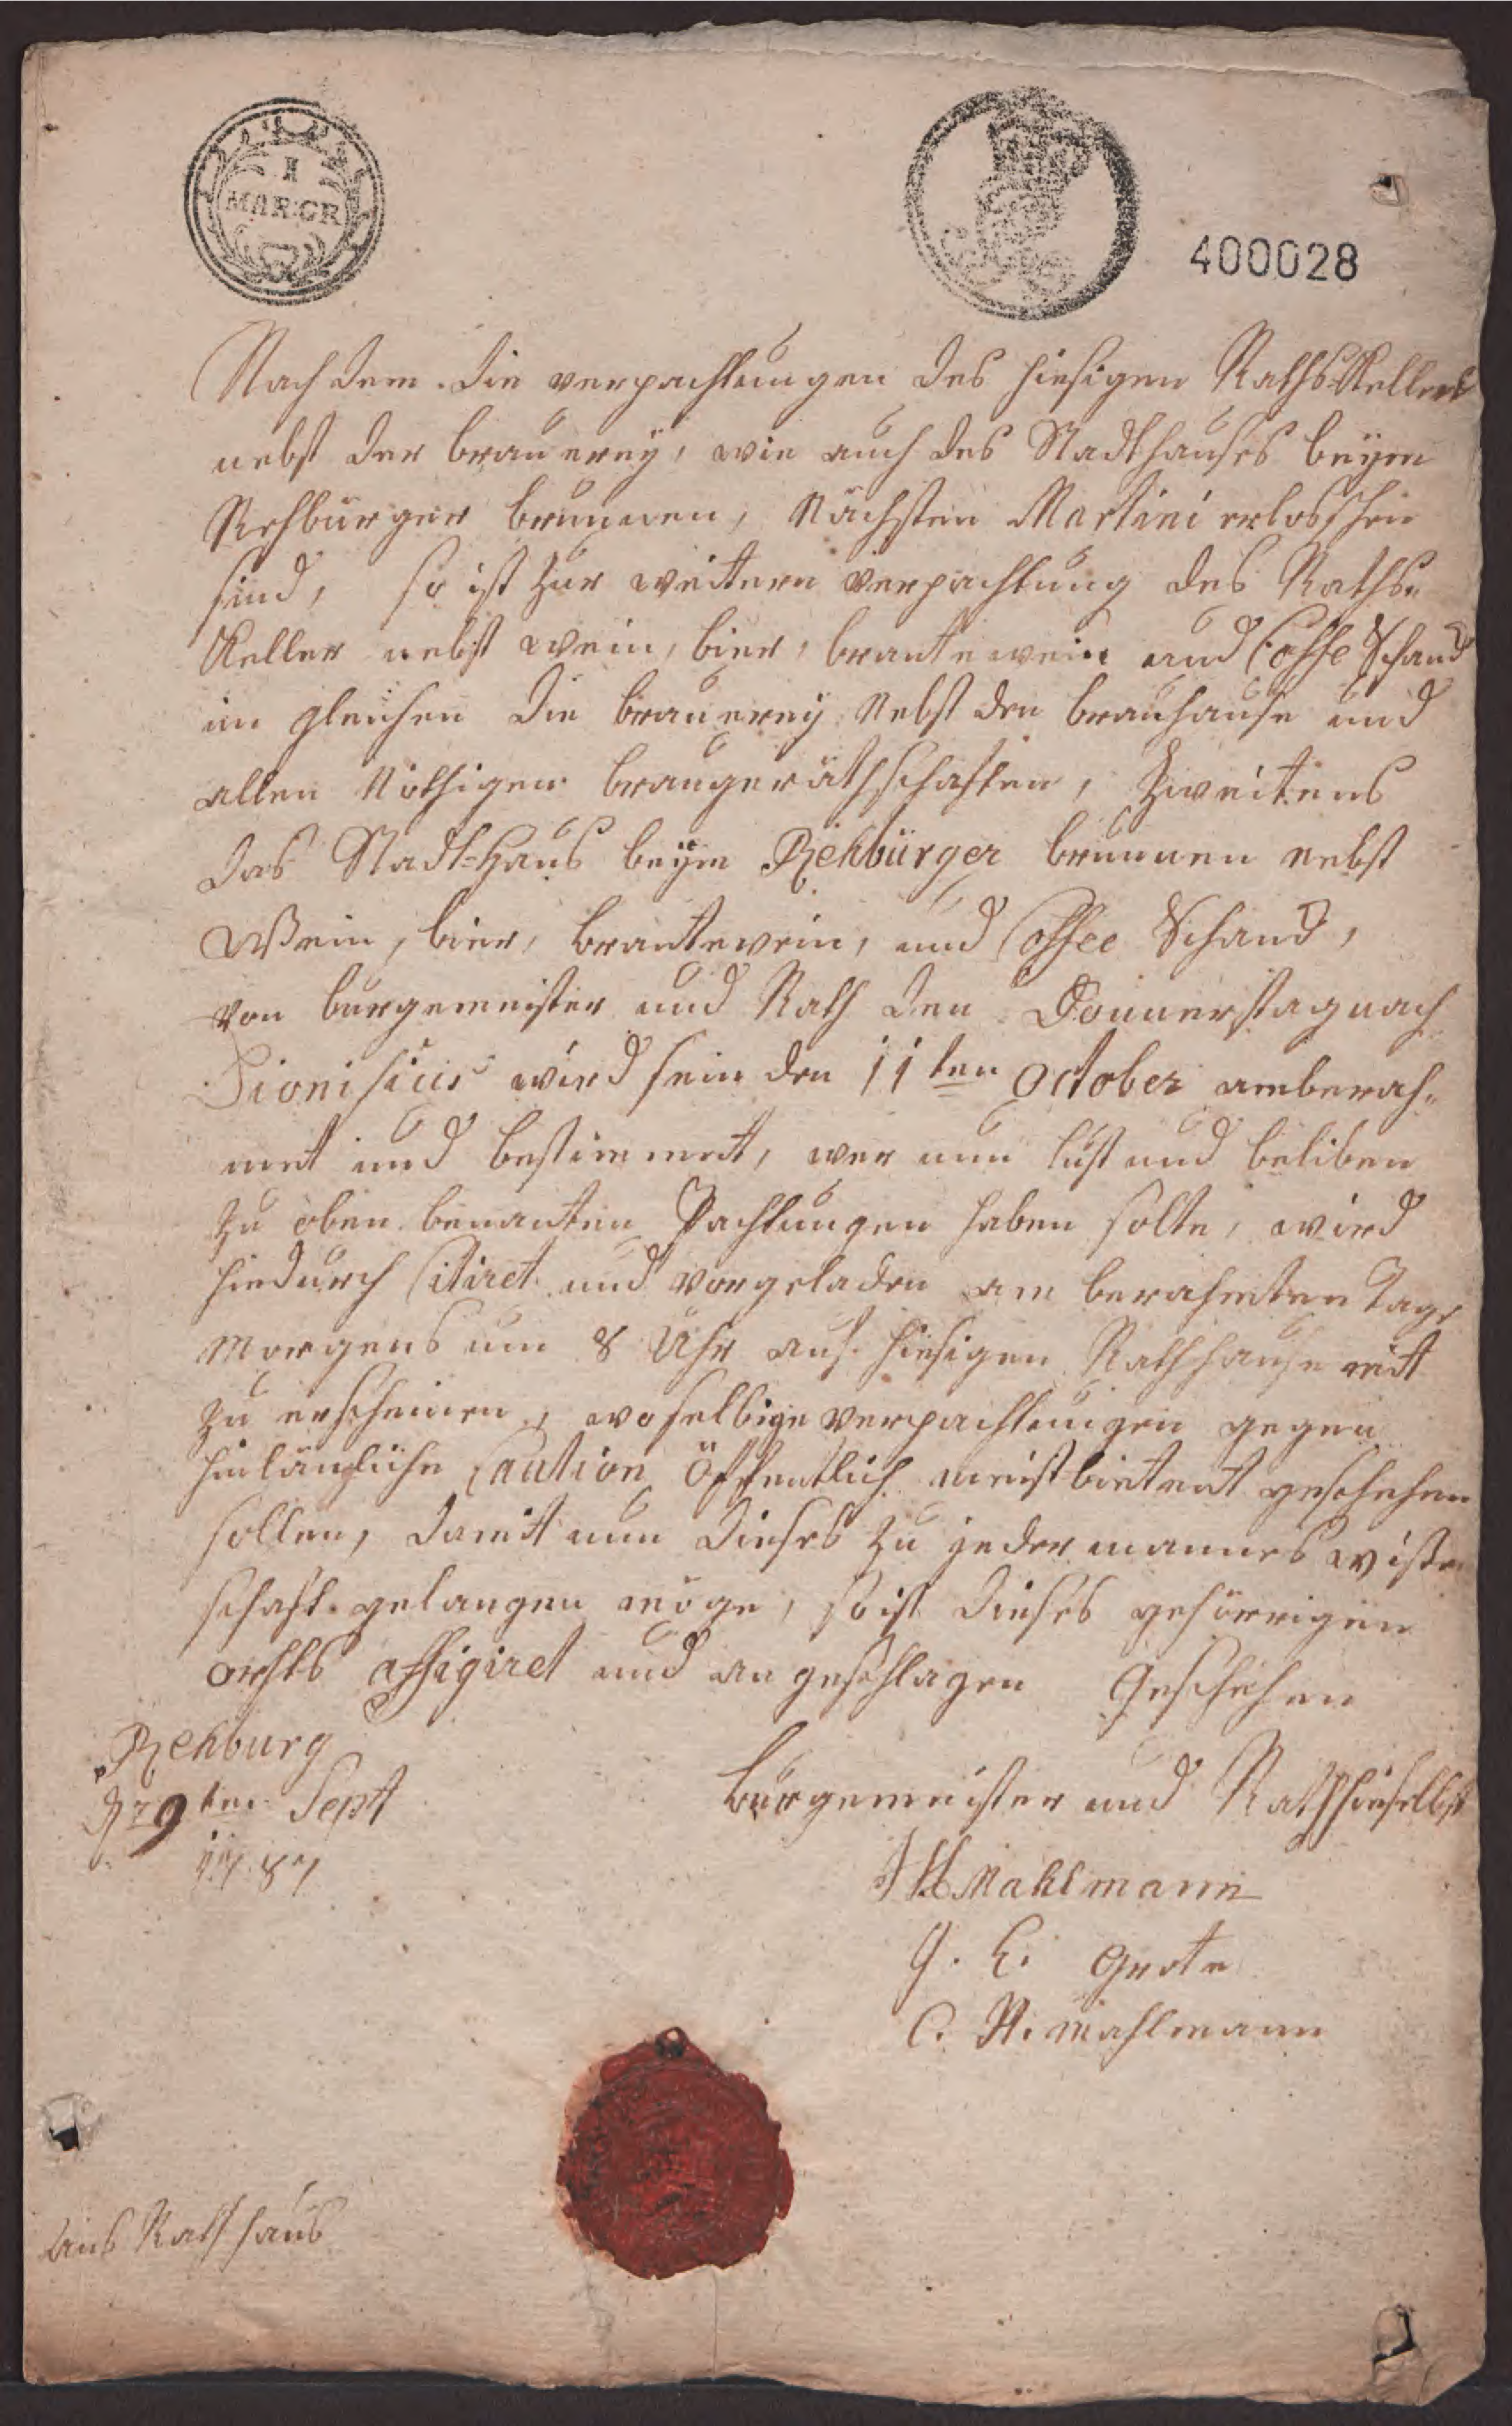 I
MAR:GR
400028
Nach dem die verpachtungen des hiesigen Raths Kellers
nebst der brauerey, wie auch des Stadthauses beym
Rehburger brunnen, Nächsten Martini erloschen
sind, so ist zur weitern verpachtung des Raths=
Keller nebst wein, bier, brantewein und Coffe Schanck
im gleichen die brauerey Nebst den brauhause und
allen Nöthigen braugeräthschaften, Zweitens
das Stadt=Haus beym Rehbürger brunnen nebst
Wein, bier, brantewein, und Coffee Schanck,
von burgemeister und Rath den Donnerstag nach
Dionisius wird sein den 11ten October amberah=
mt und bestimmet, wer nun lust und beliben
zu oben benanten Pachtungen haben solte, wird
hiedurch Citiret und vorgeladen am berahmten Tage
Morgens um 8 Uhr auf hiesigen Rathhause mit
zu erscheinen, woselbige verpachtungen gegen
hinlängliche Caution öffentlich meistbietent geschehen
sollen, damit nun dieses zu jedermannes wissen
schaft gelangen möge, so ist dieses gehörrigen
orhts affigiret und angeschlagen Geschehen
Rehburg
9ten Sept
1787
bürgemeister und Rath hieselbst
Mahlmann
Grote
C. H. Mahlmann
Rathhaus